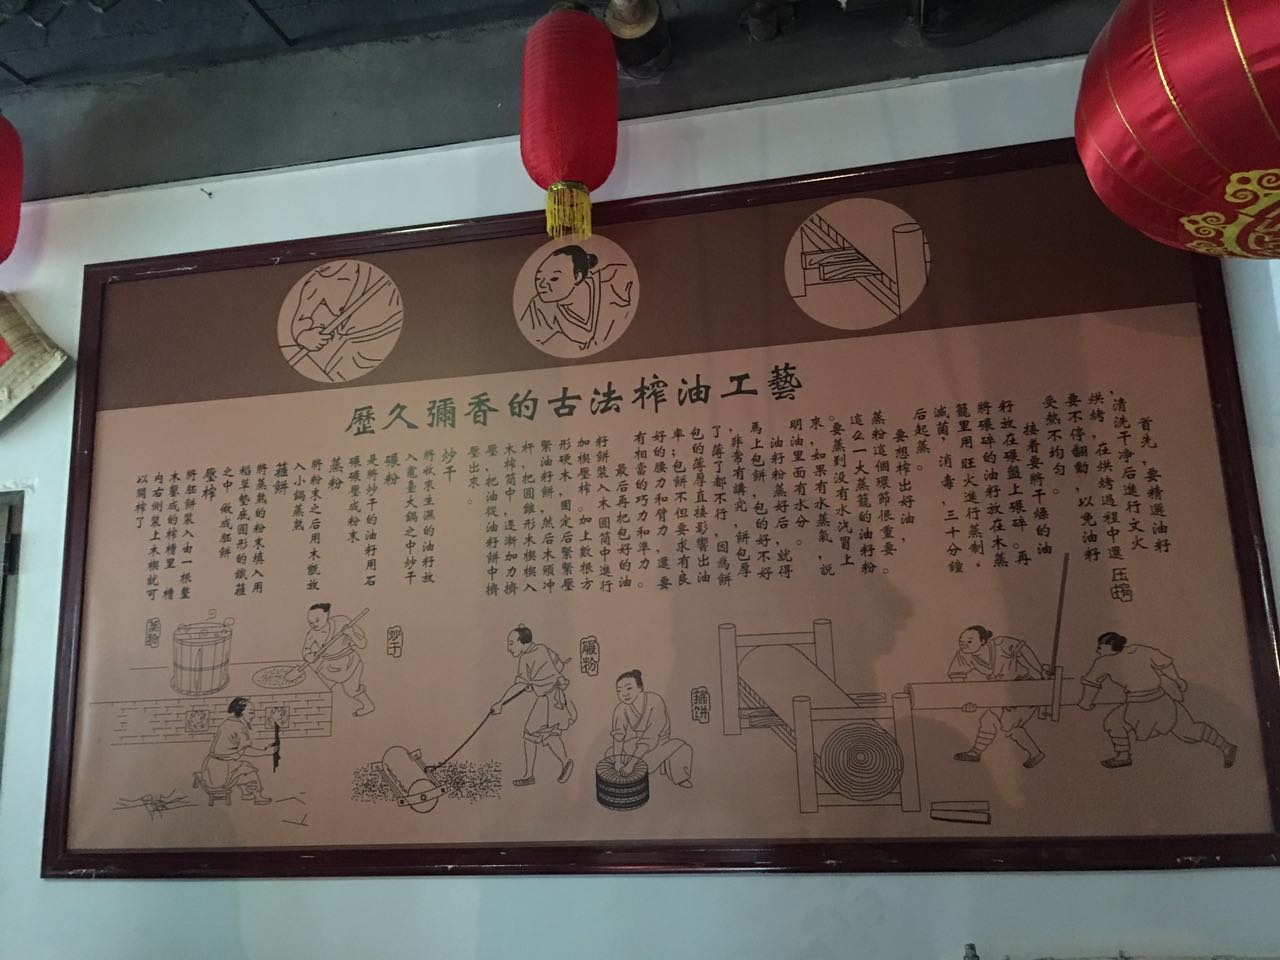 歷久彌香的古法榨油工藝
首先，要精選油籽
，清洗干净后進行文火
烘烤，在烘烤過程中還
要不停翻動，以免油籽
受熱不均匀。
接着要將干燥的油
籽放在碾盤上碾碎。再
將碾碎的油籽放在木蒸
籠里用旺火進行蒸制，
滅菌，消毒，三十分鐘
后起蒸。
要想榨出好油，
蒸粉這個環節很重要。
這么一大蒸籠的油籽粉
。要蒸到没有水汽冒上
來，如果有水蒸氣，説
明油里面有水分。
油籽粉蒸好后，就得
馬上包餅，包的好不好
，非常有講究，餅包厚
了薄了都不行，因爲餅
包的薄厚直接影響出油
率；包餅不但要求有良
好的腰力和臂力，還要
有相當的巧力和準力。
最后再把包好的油
籽餅裝入木圓筒中進行
加楔壓榨。加上數根方
形硬木，固定后緊緊壓
緊油籽餅，然后木頭冲
杆，把圓錐形木楔楔入
木榨筒中，逐漸加力擠
壓，把油從油籽餅中擠
壓出來。
炒干
將收來生濕的油籽放
入竈臺大鍋之中炒干
碾粉
是將炒干的油籽用石
碾碾壓成粉末
蒸粉
將粉末之后用木甑放
入小鍋蒸熟
箍餅
將蒸熟的粉末填入用
稻草墊底圓形的鐵箍
之中，做成胚餅
壓榨
將胚餅裝入由一根整
木鑿成的榨槽里，槽
内右側裝上木楔就可
以開榨了
压榨
箍饼
碾粉
炒干
蒸粉